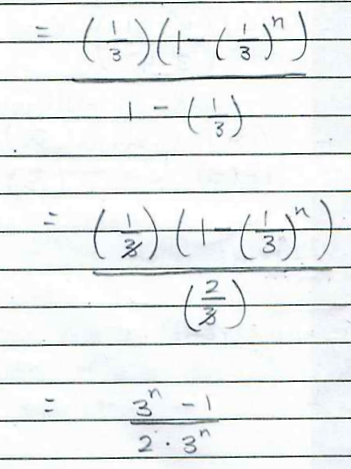 = (1/3)(1-(1/3)^n)
1 - (1/3)
= (1/3)(1-(1/3)^n)
(2/3)
= 3^n - 1
2 · 3^n